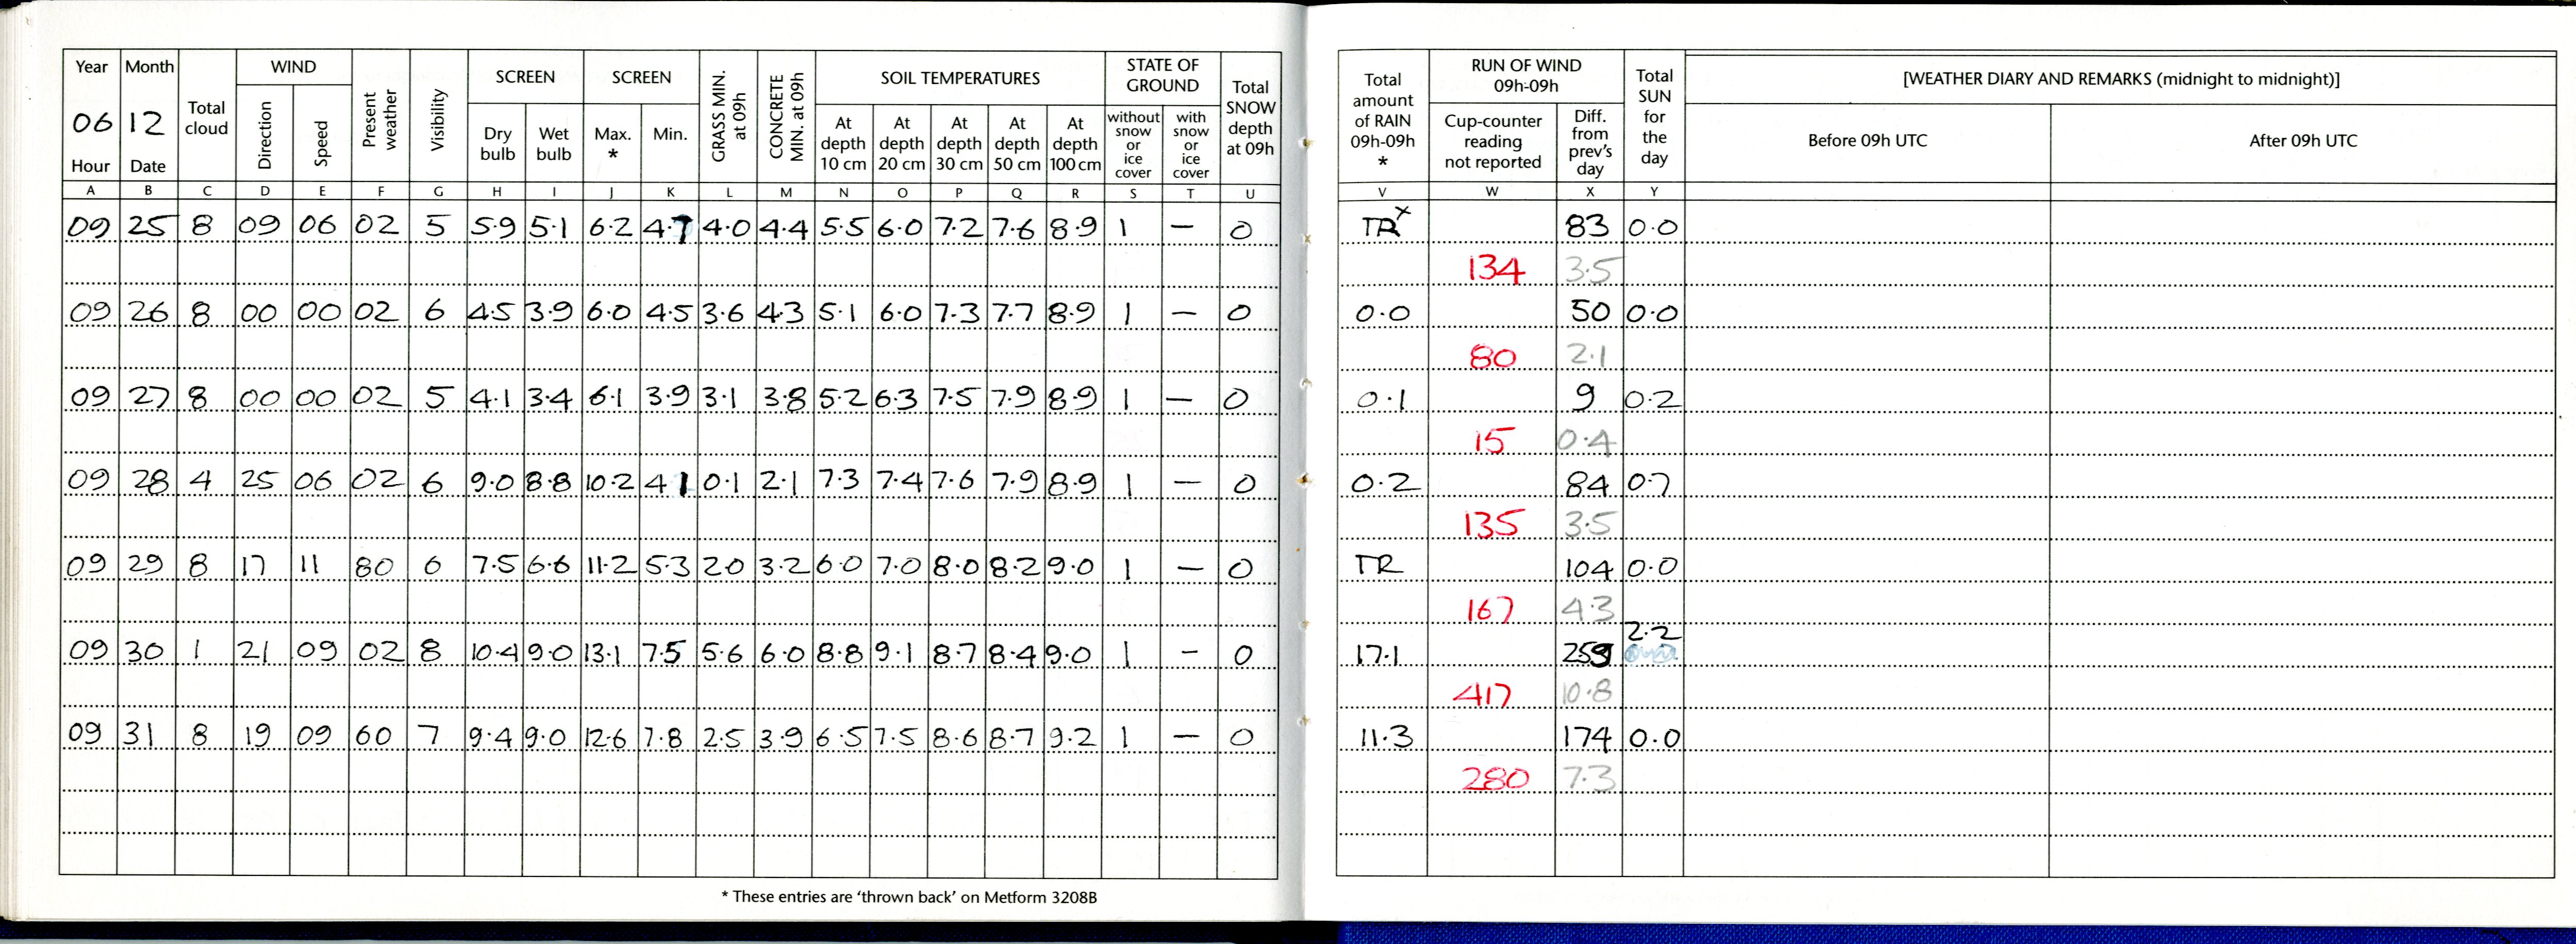 Year Month Total cloud WIND Present weather Visibility SCREEN SCREEN GRASS MIN. at 09h CONCRETE MIN. at 09h SOIL TEMPERATURES STATE OF GROUND Total SNOW depth at 09h Total amount of RAIN 09h-09h * RUN OF WIND 09h-09h Total SUN for the day [WEATHER DIARY AND REMARKS (midnight to midnight)]
06 12 Direction Speed Dry bulb Wet bulb Max. * Min. At depth 10 cm At depth 20 cm At depth 30 cm At depth 50 cm At depth 100 cm without snow or ice cover with snow or ice cover Cup-counter reading not reported Diff. from prev's day Before 09h UTC After 09h UTC
Hour Date
A B C D E F G H I J K L M N O P Q R S T U V W X Y
09 25 8 09 06 02 5 5.9 5.1 6.2 4.7 4.0 4.4 5.5 6.0 7.2 7.6 8.9 1 — 0 TR x 83 0.0
134 3.5
09 26 8 00 00 02 6 4.5 3.9 6.0 4.5 3.6 4.3 5.1 6.0 7.3 7.7 8.9 1 — 0 0.0 50 0.0
80 2.1
09 27 8 00 00 02 5 4.1 3.4 6.1 3.9 3.1 3.8 5.2 6.3 7.5 7.9 8.9 1 — 0 0.1 9 0.2
15 0.4
09 28 4 25 06 02 6 9.0 8.8 10.2 4 1 0.1 2.1 7.3 7.4 7.6 7.9 8.9 1 — 0 0.2 84 0.7
135 3.5
09 29 8 17 11 80 6 7.5 6.6 11.2 5.3 2.0 3.2 6.0 7.0 8.0 8.2 9.0 1 — 0 TR 104 0.0
167 4.3
09 30 1 21 09 02 8 10.4 9.0 13.1 7.5 5.6 6.0 8.8 9.1 8.7 8.4 9.0 1 — 0 17.1 259 2.2
417 10.8
09 31 8 19 09 60 7 9.4 9.0 12.6 7.8 2.5 3.9 6.5 7.5 8.6 8.7 9.2 1 — 0 11.3 174 0.0
280 7.3
* These entries are 'thrown back' on Metform 3208B